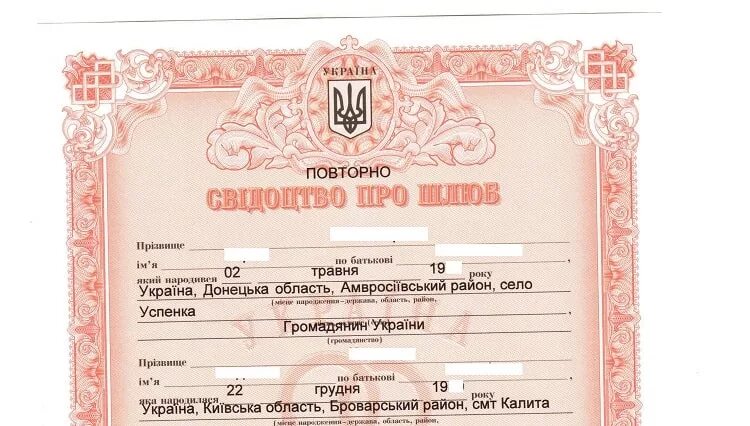 УКРАЇНА
ПОВТОРНО
СВІДОЦТВО ПРО ШЛЮБ
Прізвище
ім'я по батькові
який народився 02 травня 19 року
Україна, Донецька область, Амвросіївський район, село
(місце народження-держава, область, район,
Успенка
УКРАЇНА
Громадянин України
(громадянство)
Прізвище
ім'я по батькові
яка народилася 22 грудня 19 року
Україна, Київська область, Броварський район, смт Калита
(місце народження-держава, область, район,